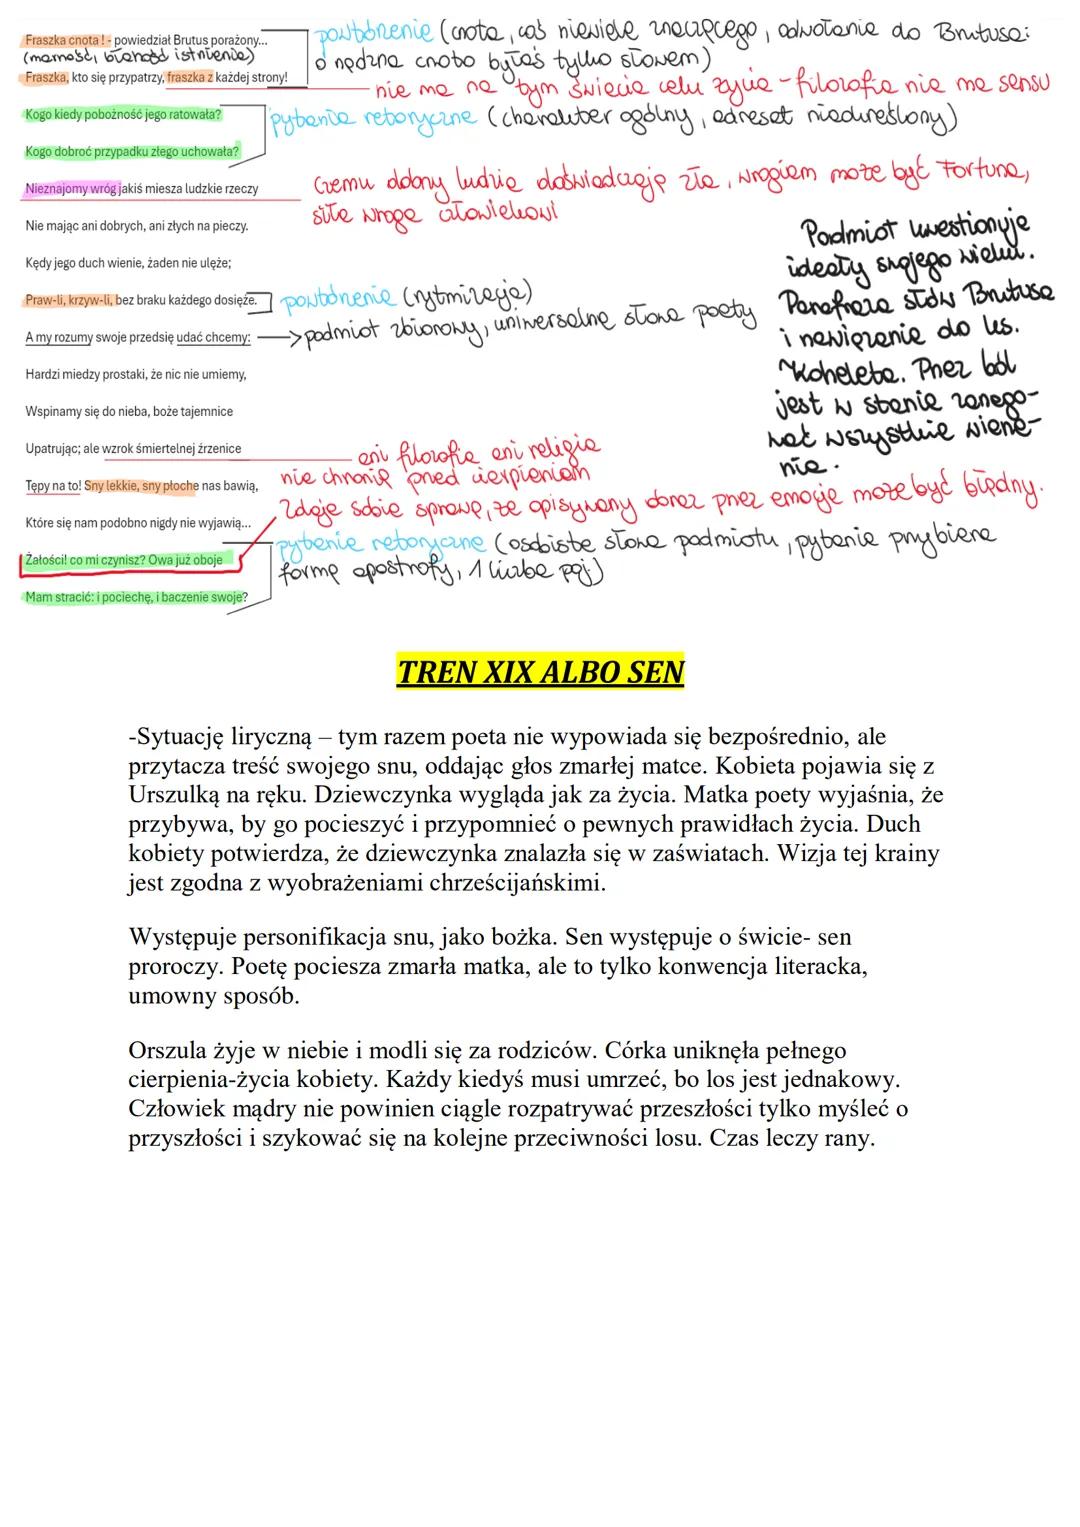 Fraszka cnota ! - powiedział Brutus porażony...
(marność, błahość istnienia)
Fraszka, kto się przypatrzy, fraszka z każdej strony!
powtórzenie (cnota, coś niewiele znaczącego, odwołanie do Brutusa:
o nędzna cnoto byłaś tylko słowem)
nie ma na tym świecie celu życia - filozofia nie ma sensu
Kogo kiedy pobożność jego ratowała?
pytania retoryczne (charakter ogólny, adresat nieokreślony)
Kogo dobroć przypadku złego uchowała?
Nieznajomy wróg jakiś miesza ludzkie rzeczy
Czemu dobrzy ludzie doświadczają zła, wrogiem może być Fortuna,
siła wroga człowiekowi
Nie mając ani dobrych, ani złych na pieczy.
Kędy jego duch wienie, żaden nie ulęże;
Praw-li, krzyw-li, bez braku każdego dosięże.
powtórzenie (rytmizacja)
A my rozumy swoje przedsię udać chcemy:
podmiot zbiorowy, uniwersalne słowa poety
Podmiot kwestionuje
ideały swojego wieku.
Parafraza słów Brutusa
i nawiązanie do ks.
Koheleta. Przez ból
jest w stanie zanego-
wać wszystkie wierze-
nia.
Hardzi miedzy prostaki, że nic nie umiemy,
Wspinamy się do nieba, boże tajemnice
Upatrując; ale wzrok śmiertelnej źrzenice
ani filozofia ani religia
nie chronią przed cierpieniem
Tępy na to! Sny lekkie, sny płoche nas bawią,
Zdaje sobie sprawę, że opisywany obraz przez emocje może być błędny.
Które się nam podobno nigdy nie wyjawią...
Żałości! co mi czynisz? Owa już oboje
pytanie retoryczne (osobiste słowa podmiotu, pytanie przybiera
formę apostrofy, 1 liczba poj.)
Mam stracić: i pociechę, i baczenie swoje?
TREN XIX ALBO SEN
-Sytuację liryczną – tym razem poeta nie wypowiada się bezpośrednio, ale
przytacza treść swojego snu, oddając głos zmarłej matce. Kobieta pojawia się z
Urszulką na ręku. Dziewczynka wygląda jak za życia. Matka poety wyjaśnia, że
przybywa, by go pocieszyć i przypomnieć o pewnych prawidłach życia. Duch
kobiety potwierdza, że dziewczynka znalazła się w zaświatach. Wizja tej krainy
jest zgodna z wyobrażeniami chrześcijańskimi.
Występuje personifikacja snu, jako bożka. Sen występuje o świcie- sen
proroczy. Poetę pociesza zmarła matka, ale to tylko konwencja literacka,
umowny sposób.
Orszula żyje w niebie i modli się za rodziców. Córka uniknęła pełnego
cierpienia-życia kobiety. Każdy kiedyś musi umrzeć, bo los jest jednakowy.
Człowiek mądry nie powinien ciągle rozpatrywać przeszłości tylko myśleć o
przyszłości i szykować się na kolejne przeciwności losu. Czas leczy rany.